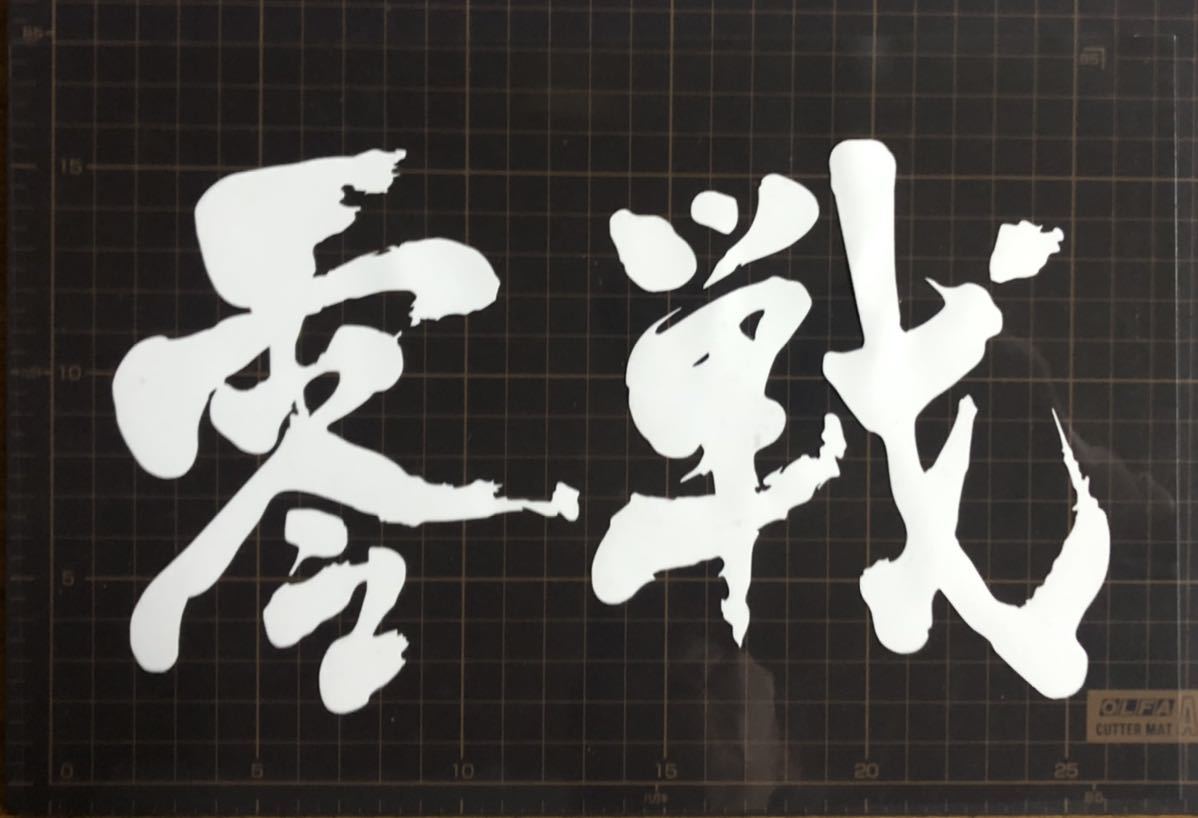 零戦
15
10
5
0 5 10 15 20 25
OLFA
CUTTER MAT